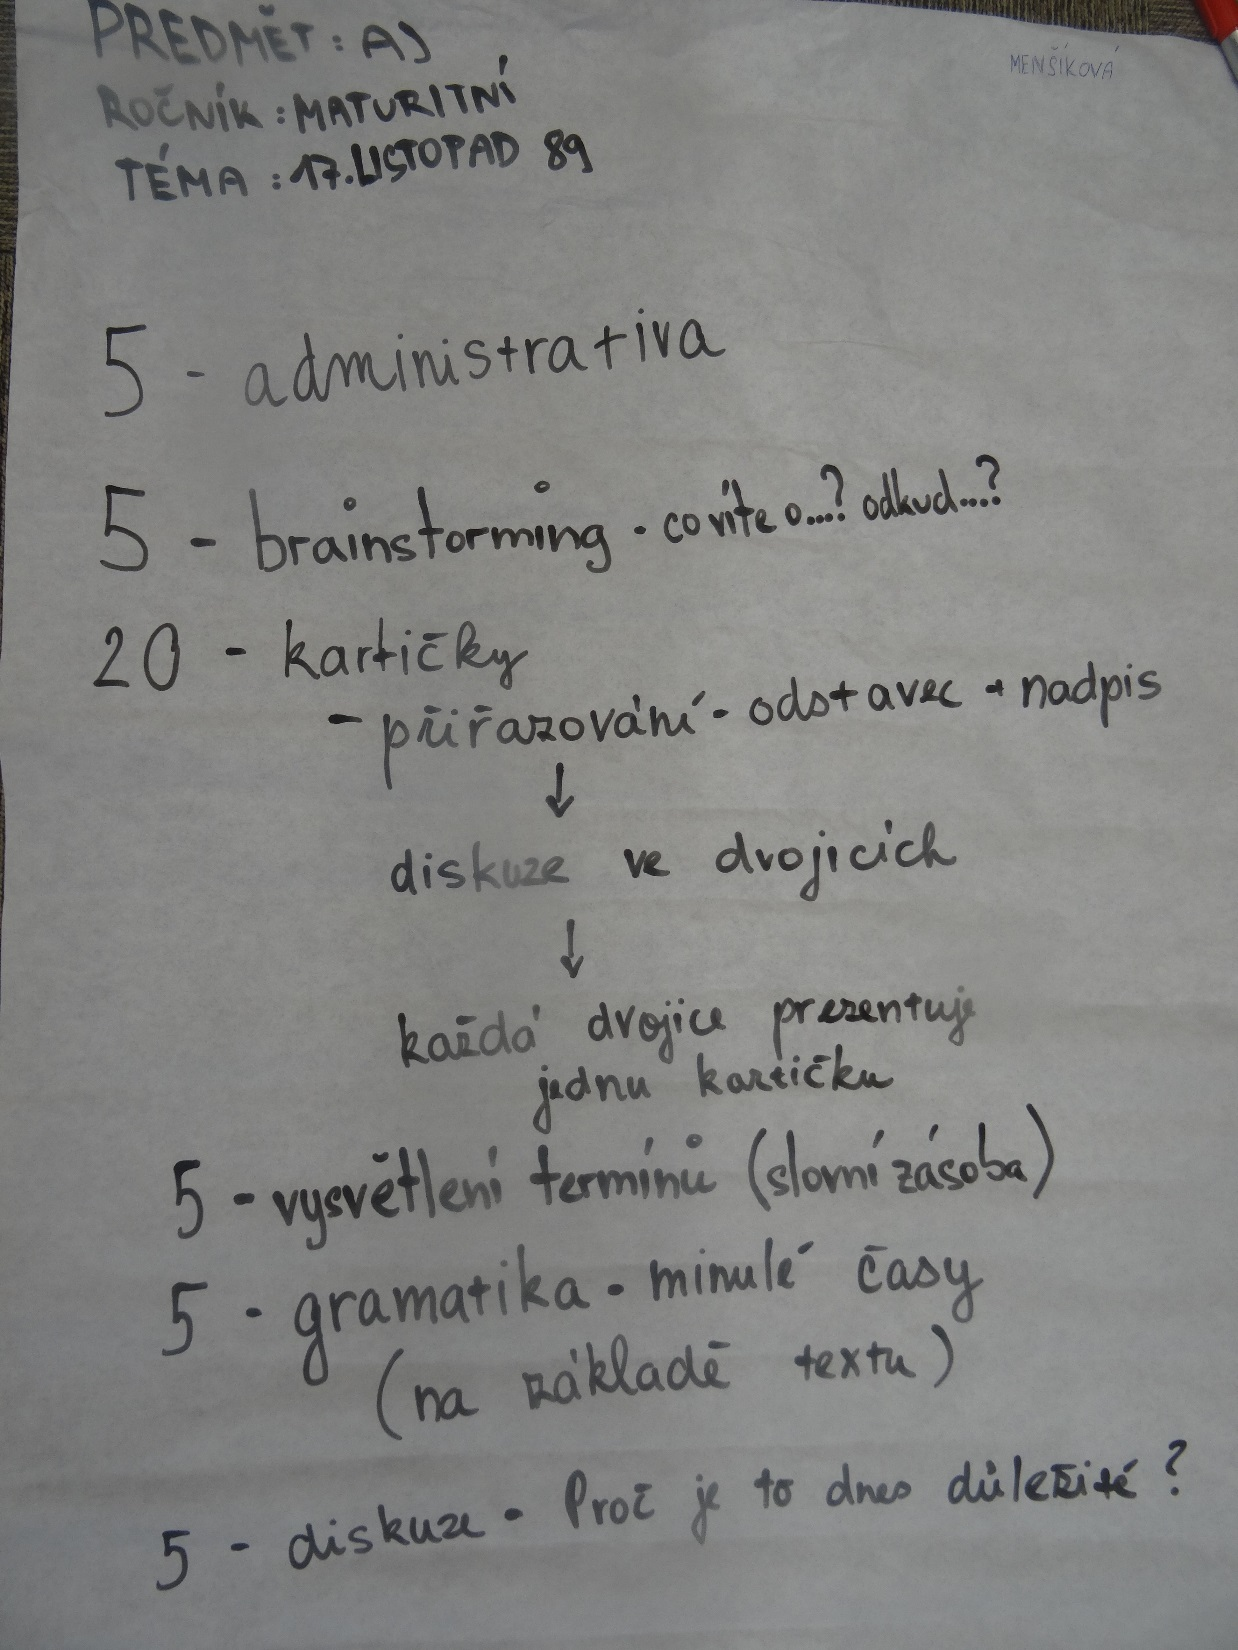 PŘEDMĚT: AJ
MENŠÍKOVÁ
ROČNÍK: MATURITNÍ
TÉMA: 17. LISTOPAD 89
5 - administrativa
5 - brainstorming - co víte o...? odkud...?
20 - kartičky
- přiřazování - odstavec + nadpis
↓
diskuze ve dvojicích
↓
každá dvojice prezentuje
jednu kartičku
5 - vysvětlení termínů (slovní zásoba)
5 - gramatika - minulé časy
(na základě textu)
5 - diskuze - Proč je to dnes důležité?